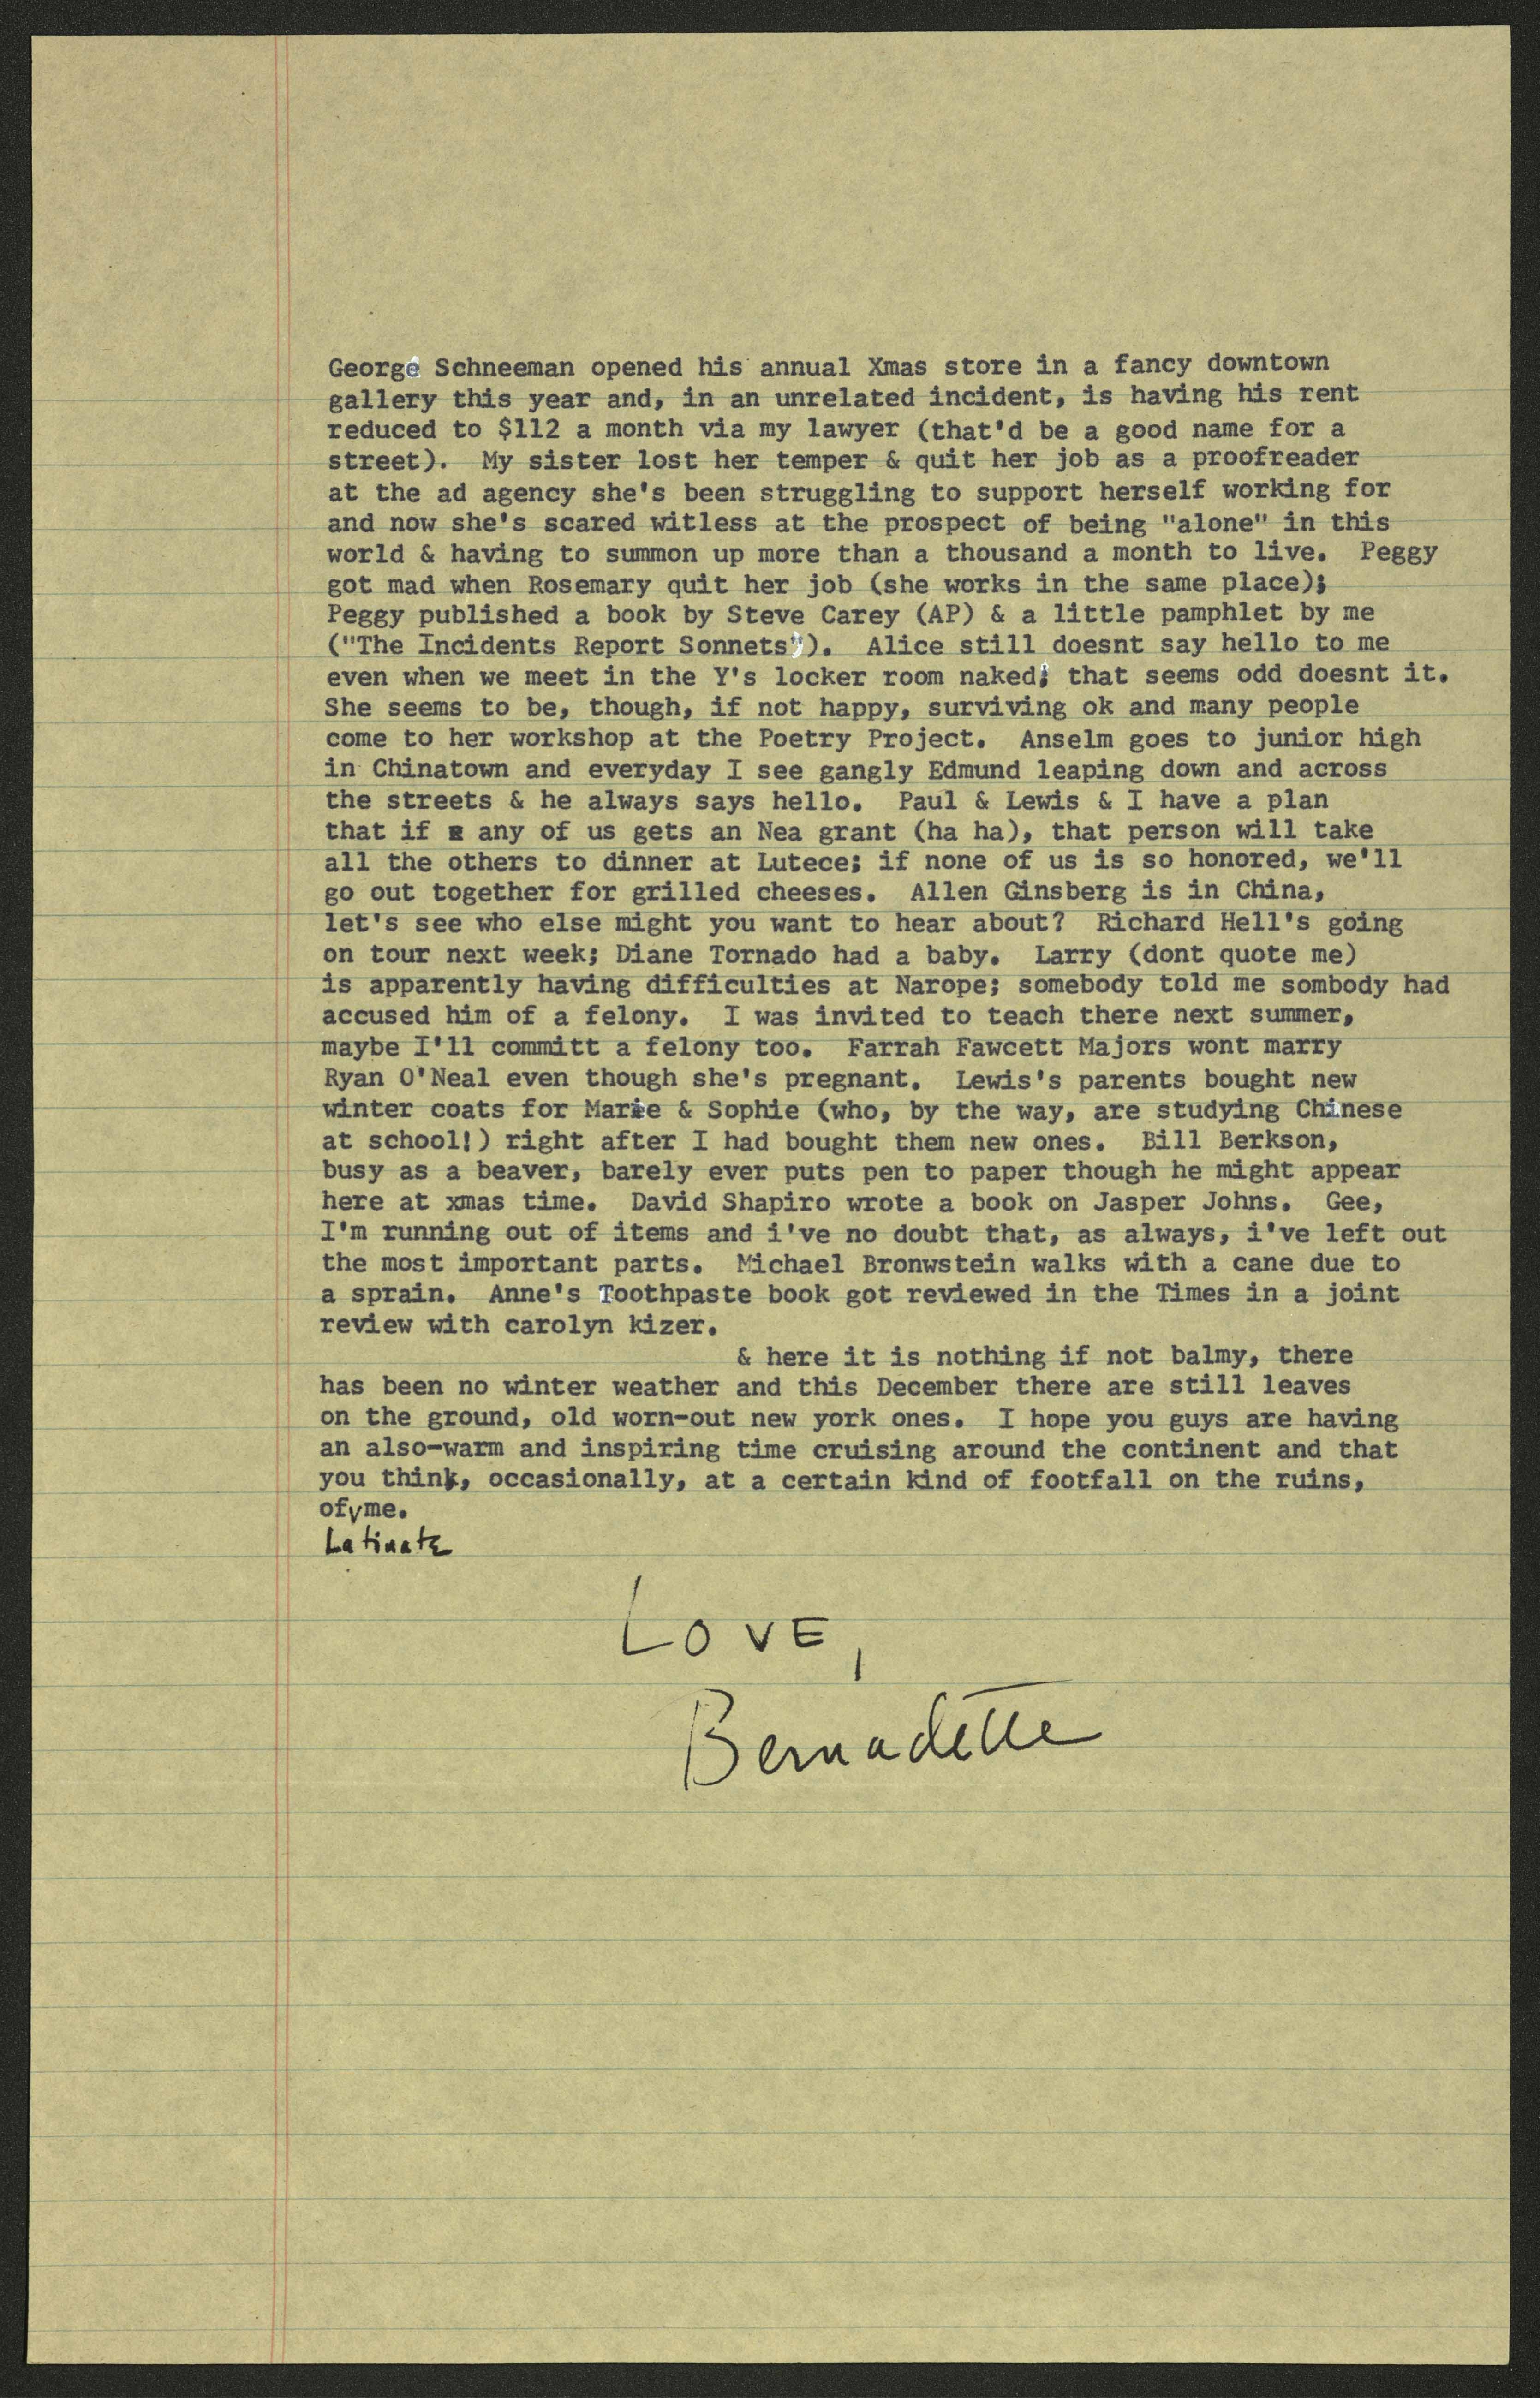 George Schneeman opened his annual Xmas store in a fancy downtown
gallery this year and, in an unrelated incident, is having his rent
reduced to $112 a month via my lawyer (that'd be a good name for a
street).  My sister lost her temper & quit her job as a proofreader
at the ad agency she's been struggling to support herself working for
and now she's scared witless at the prospect of being "alone" in this
world & having to summon up more than a thousand a month to live.  Peggy
got mad when Rosemary quit her job (she works in the same place);
Peggy published a book by Steve Carey (AP) & a little pamphlet by me
("The Incidents Report Sonnets").  Alice still doesnt say hello to me
even when we meet in the Y's locker room naked; that seems odd doesnt it.
She seems to be, though, if not happy, surviving ok and many people
come to her workshop at the Poetry Project.  Anselm goes to junior high
in Chinatown and everyday I see gangly Edmund leaping down and across
the streets & he always says hello.  Paul & Lewis & I have a plan
that if any of us gets an Nea grant (ha ha), that person will take
all the others to dinner at Lutece; if none of us is so honored, we'll
go out together for grilled cheeses.  Allen Ginsberg is in China,
let's see who else might you want to hear about?  Richard Hell's going
on tour next week; Diane Tornado had a baby.  Larry (dont quote me)
is apparently having difficulties at Narope; somebody told me sombody had
accused him of a felony.  I was invited to teach there next summer,
maybe I'll committ a felony too.  Farrah Fawcett Majors wont marry
Ryan O'Neal even though she's pregnant.  Lewis's parents bought new
winter coats for Marie & Sophie (who, by the way, are studying Chinese
at school!) right after I had bought them new ones.  Bill Berkson,
busy as a beaver, barely ever puts pen to paper though he might appear
here at xmas time.  David Shapiro wrote a book on Jasper Johns.  Gee,
I'm running out of items and i've no doubt that, as always, i've left out
the most important parts.  Michael Bronwstein walks with a cane due to
a sprain.  Anne's Toothpaste book got reviewed in the Times in a joint
review with carolyn kizer.
& here it is nothing if not balmy, there
has been no winter weather and this December there are still leaves
on the ground, old worn-out new york ones.  I hope you guys are having
an also-warm and inspiring time cruising around the continent and that
you think, occasionally, at a certain kind of footfall on the ruins,
of me.
Latinate
LOVE,
Bernadette